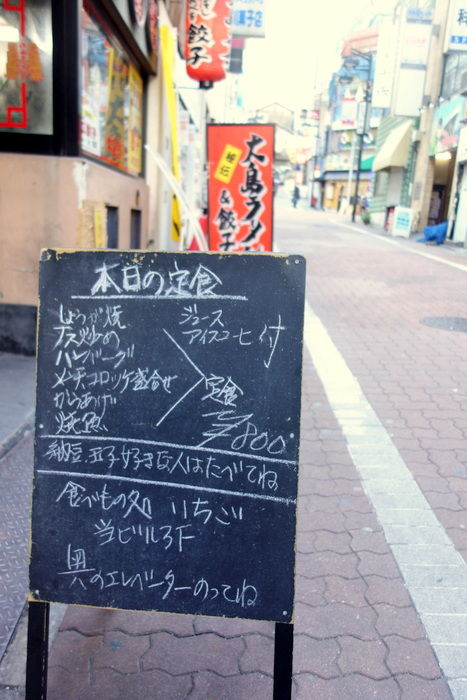 餃子
菓子店
秘伝
大島ラーメン
&餃子
本日の定食
しょうが焼
ナス炒め
ハンバーグ
メンチコロッケ盛合せ
からあげ
焼魚
ジュース
アイスコーヒー付
定食
¥800
納豆、玉子好きな人はたべてね
食べもの処 いちご
当ビル3F
奥のエレベーターのってね